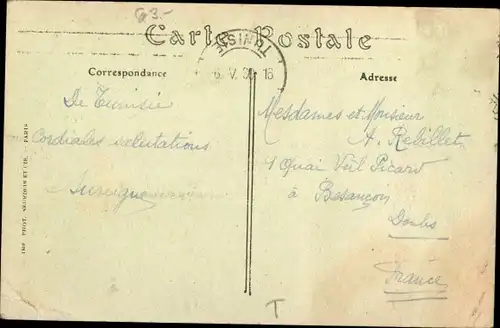 63.-
Carte Postale
TUNISIE
6. V. 30 18
Correspondance
Adresse
De Tunisie
Cordiales salutations
Mesdames et Monsieur
A. Rebillet
9 Quai Veil Picard
à Besançon
Doubs
France
T
IMP. PHOT. NEURDEIN ET CIE. — PARIS